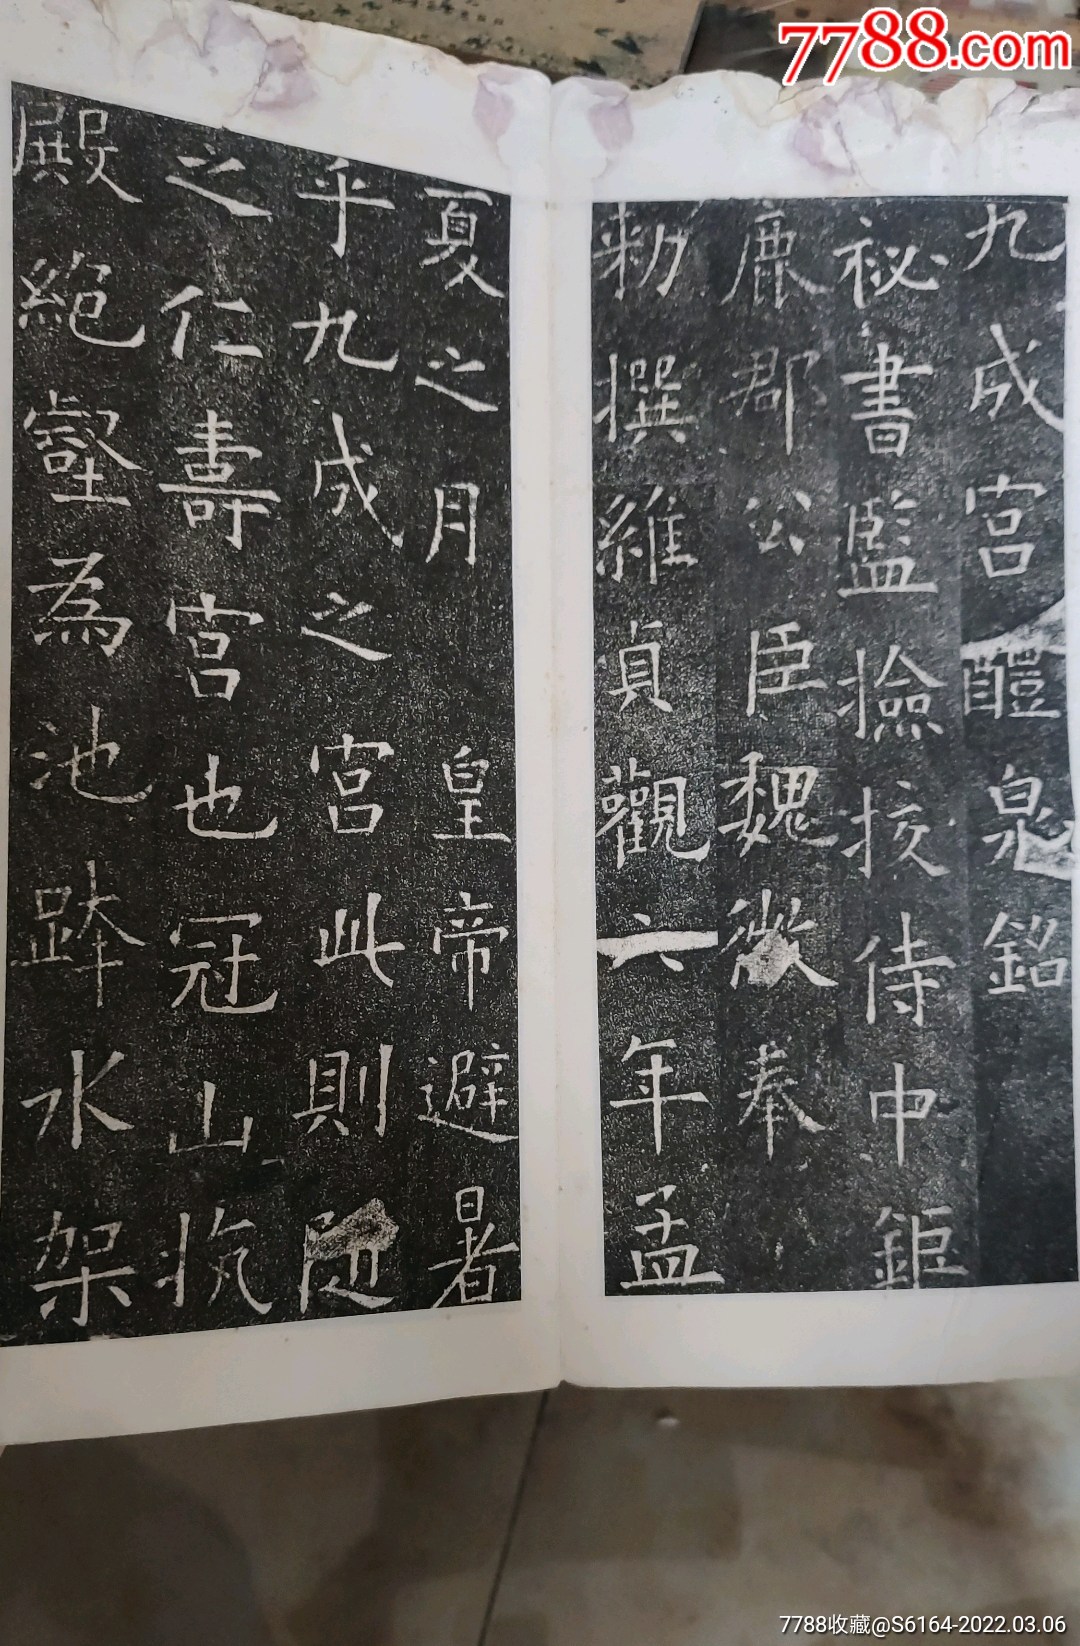 7788.com
九成宮醴泉銘
祕書監撿挍侍中鉅
鹿郡公臣魏徵奉
勑撰維貞觀六年孟
夏之月 皇帝避暑
乎九成之宮此則隨
之仁壽宮也冠山抗
殿絕壑為池跨水架
7788收藏@S6164-2022.03.06